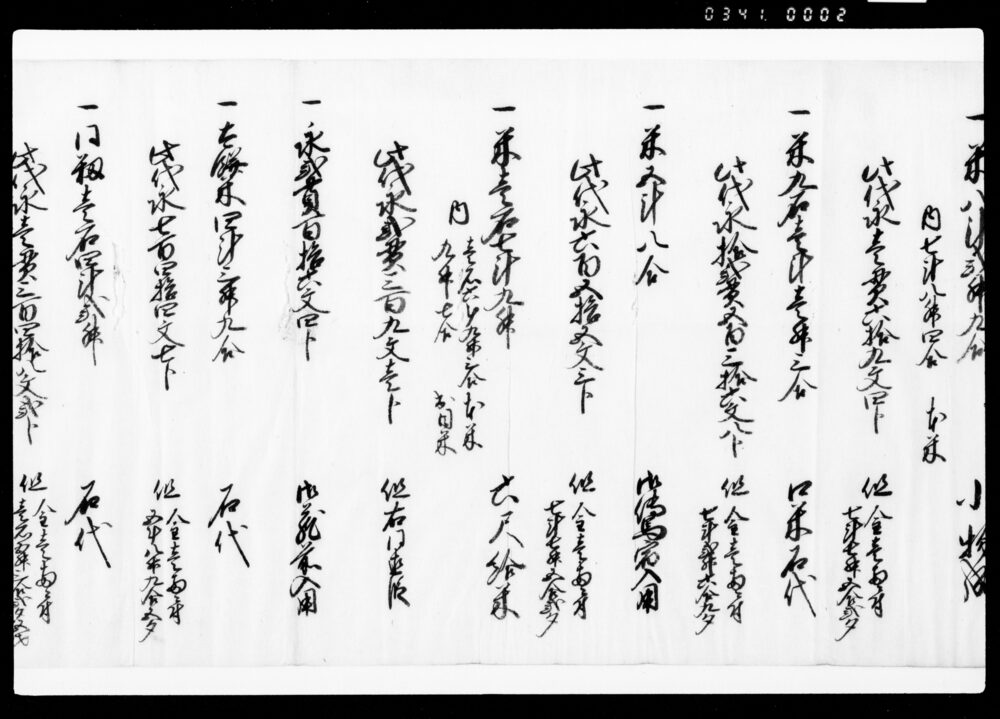 0341. 0002
一米八斗弐升九合 小物成
内七斗八升四合 本米
此代永壱貫六拾九文四卜 但金壱両ニ付
七斗七升五合弐夕
一米九石壱斗壱升三合 口米石代
此代永拾弐貫五百三拾六文八卜 但金壱両ニ付
七斗弐升六合九夕
一米五斗八合 御伝馬宿入用
此代永六百五拾五文三卜 但金壱両ニ付
七斗七升五合弐夕
一米壱石七斗九升 六尺給米
内 壱石六斗九升三合 本米
九升七合 出目米
此代永弐貫三百九文壱卜 但右同直段
一永弐貫百拾六文四卜 御蔵前入用
一大豆 四斗三升九合 石代
此代永七百四拾四文七卜 但金壱両ニ付
五斗八升九合五夕
一同 壱石四斗弐升 石代
此代永壱貫三百四拾八文弐卜 但金壱両ニ付